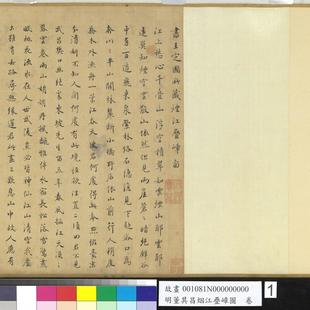 書王定國所藏煙江疊嶂圖
江上愁心千疊山浮空積翠如雲煙山耶雲耶
遠莫知煙空雲散山依然但見兩崖蒼蒼暗絕谷
中有百道飛來泉縈林絡石隱復見下赴谷口為
奔川川平山開林麓斷小橋野店依山前行人稍度
喬木外漁舟一葉江吞天使君何處得此本點綴毫末
分清妍不知人間何處有此境徑欲往置二頃田君不見
武昌樊口幽絕處東坡先生留五年春風搖江天漠漠
暮雲卷雨山娟娟丹楓翻鴉伴水宿長松落雪驚晝
眠桃花流水在人世武陵豈必皆神仙江山清空我塵
土雖有去路尋無緣還君此畫三歎息山中故人應有
故畫 001081N000000000
明董其昌烟江疊嶂圖 卷
1